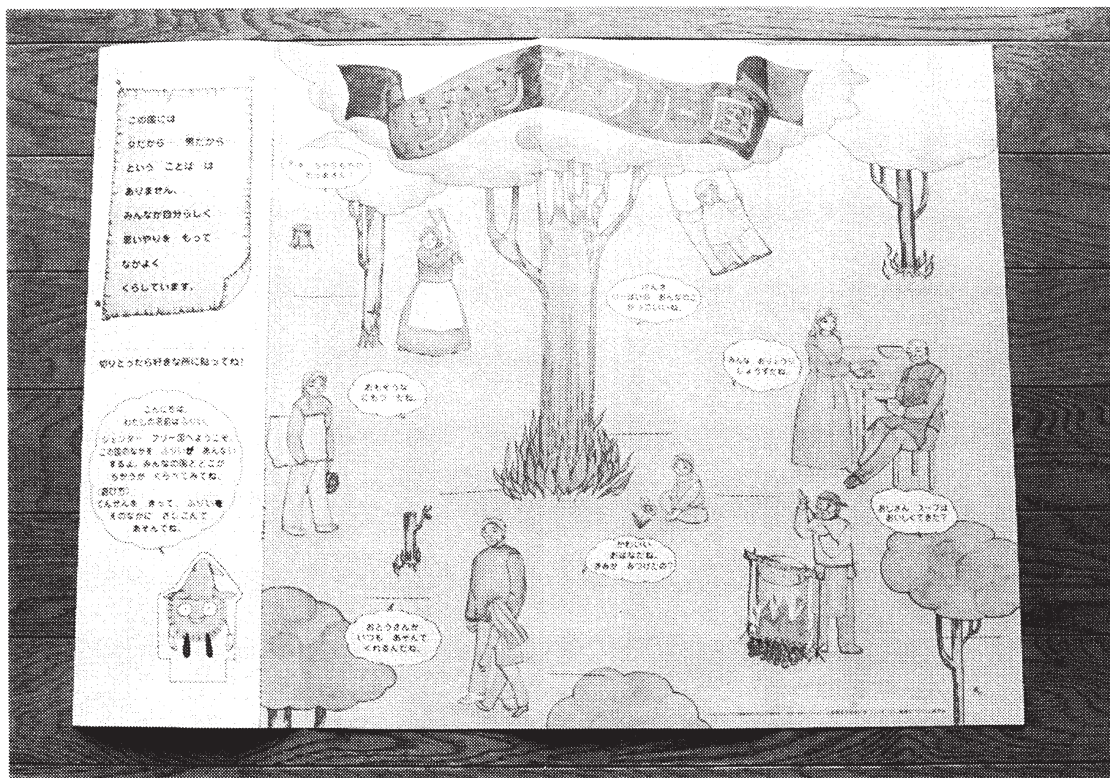 ジェンダーフリー国
この国には
女だから 男だから
という ことば は
ありません。
みんなが自分らしく
思いやりを もって
なかよく
くらしています。
切りとったら好きな所に貼ってね!
こんにちは。
わたしの名前は ふりい。
ジェンダー フリー国へようこそ
この国のなかを ふりいが あんない
するよ。みんなの国とどこが
ちがうか くらべてみてね。
(遊び方)
てんせんを きって、ふりい
そのなかに さしこんで
あそんでね。
げんき
いっぱいの おんなのこ
が
みんな おりょうり
じょうずだね。
おもそうな
にもつ だね。
おじさん スープは
おいしくできた?
かわいい
おはなだね。
きみが みつけたの?
おとうさんが
いつも あそんで
くれるんだね。